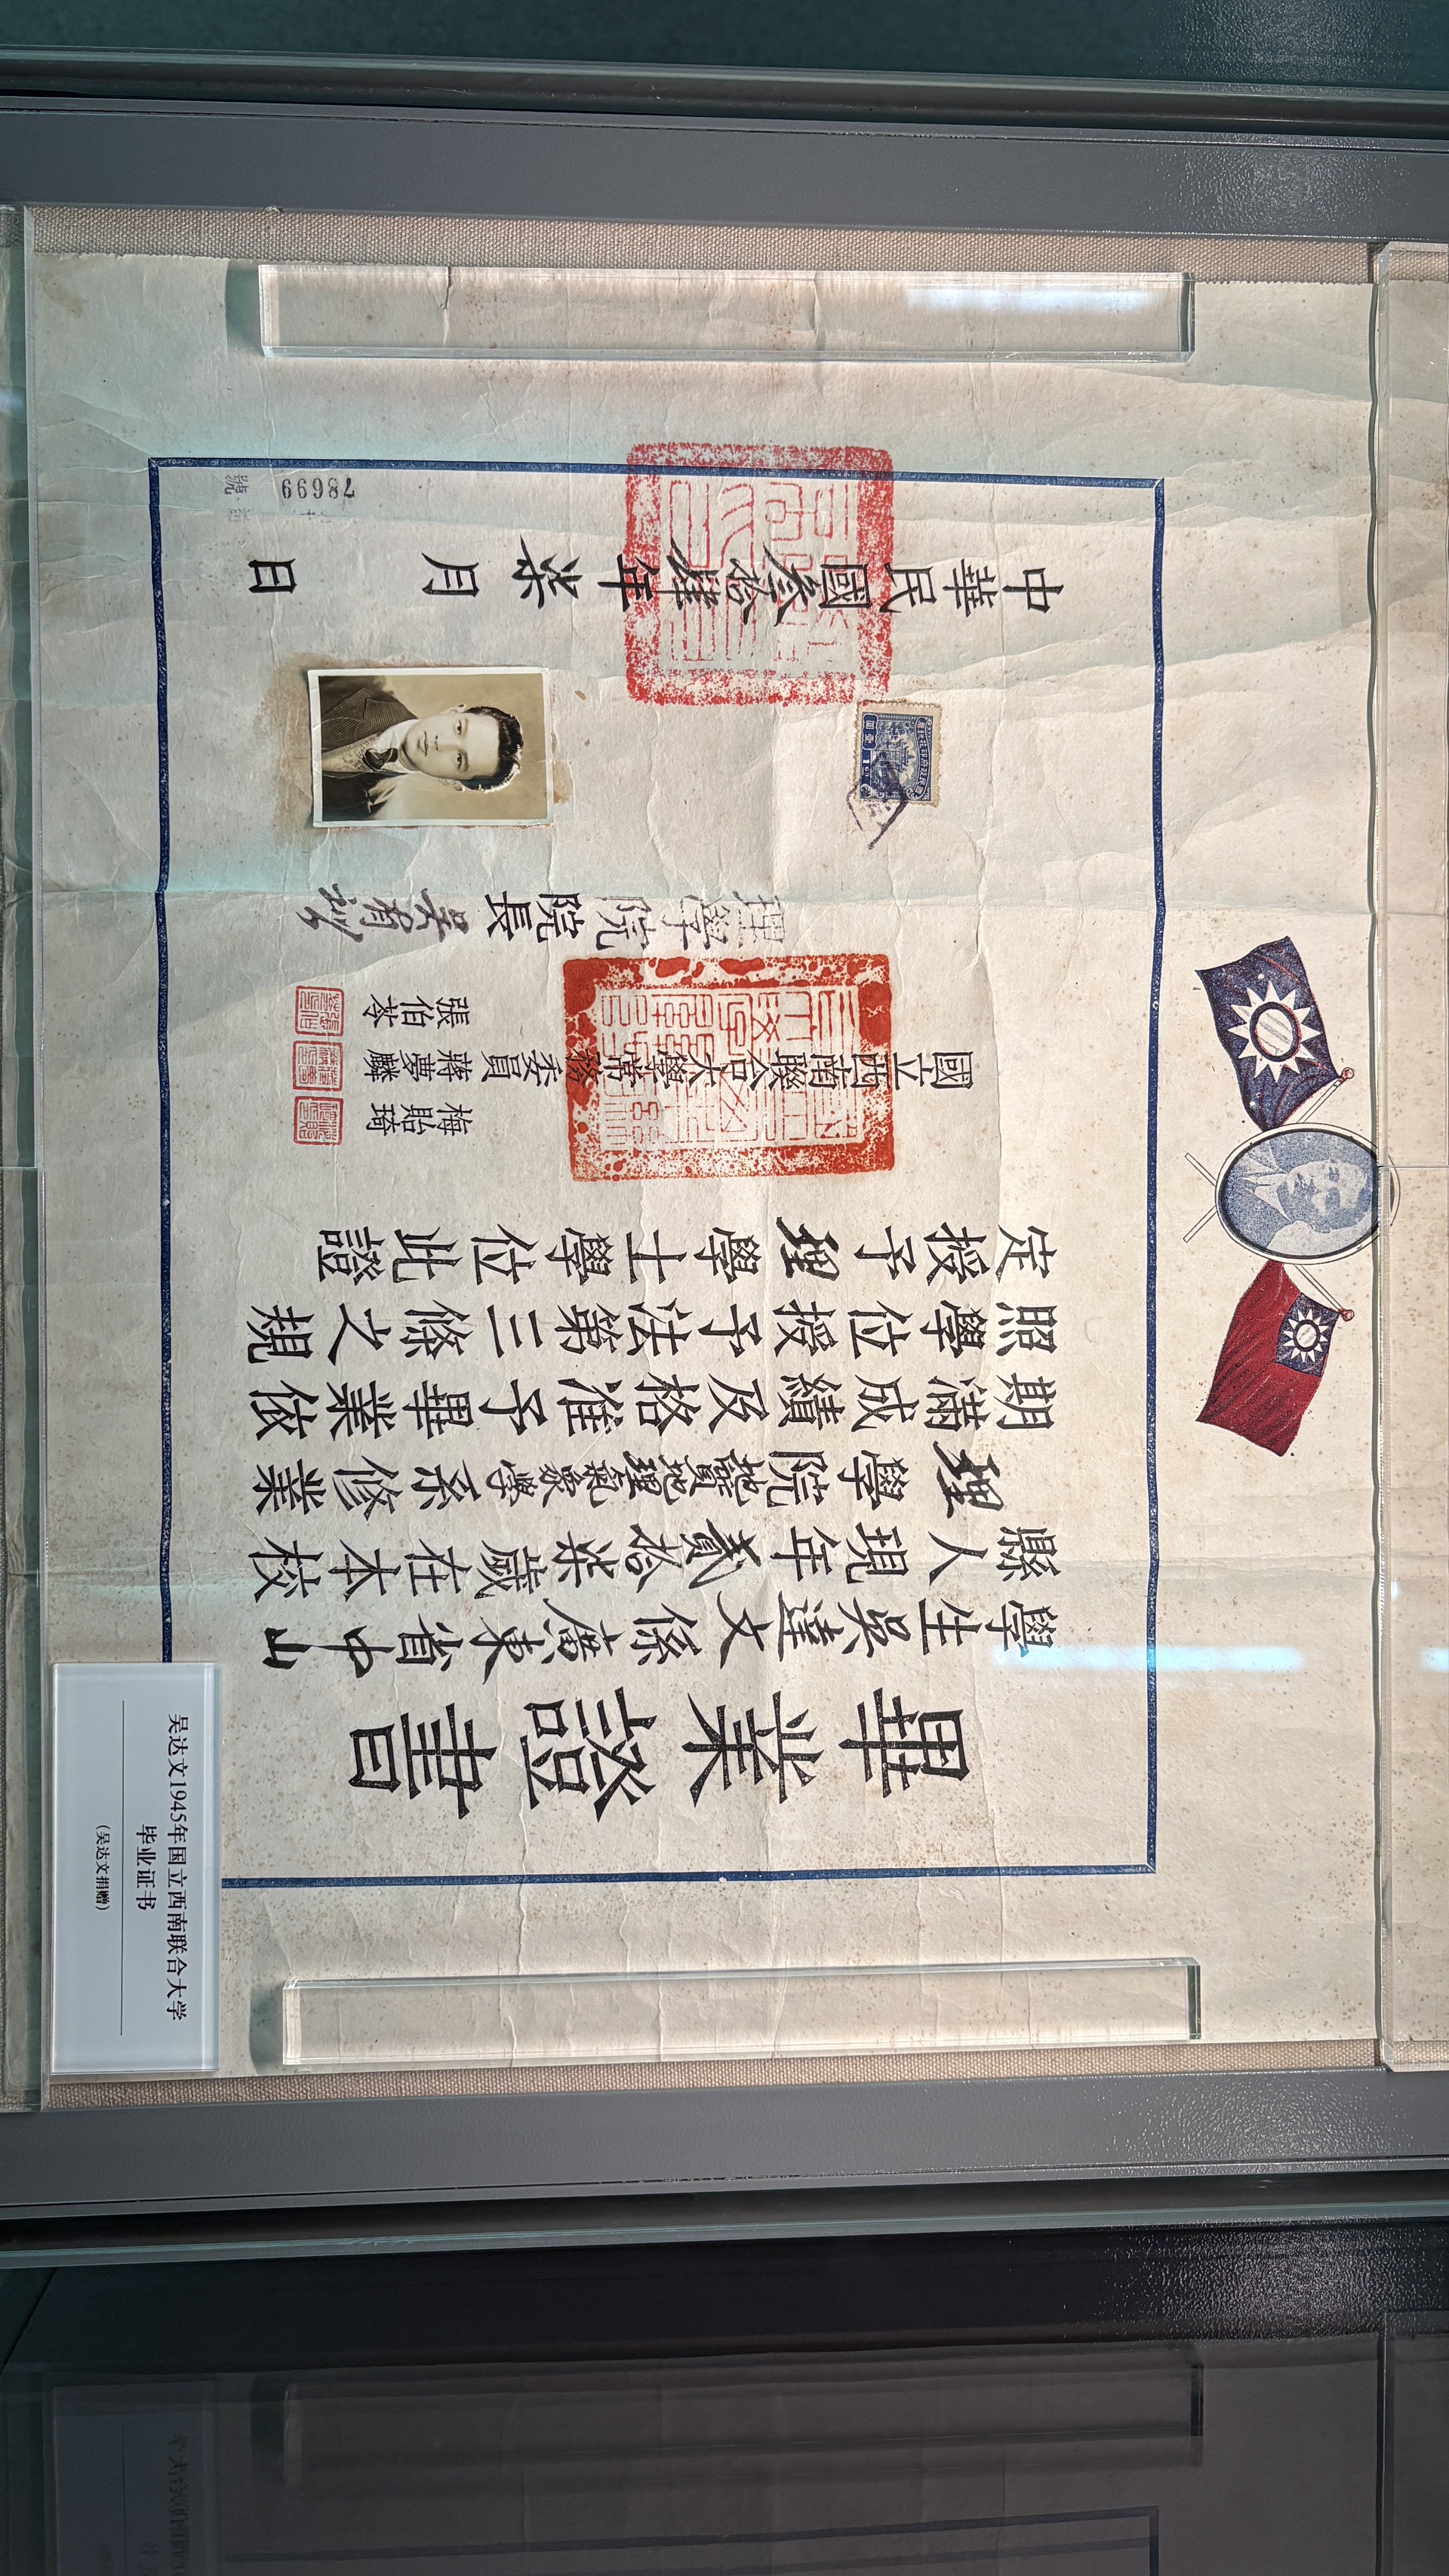 畢業證書
學生吳達文係廣東省中山
縣人現年貳拾柒歲在本校
理學院地質地理氣象學系修業
期滿成績及格准予畢業依
照學位授予法第三條之規
定授予理學士學位此證
國立西南聯合大學常務委員
梅貽琦
蔣夢麟
張伯苓
理學院院長吳有訓
中華民國叁拾肆年柒月日
78699
號
吴达文1945年国立西南联合大学
毕业证书
(吴达文捐赠)